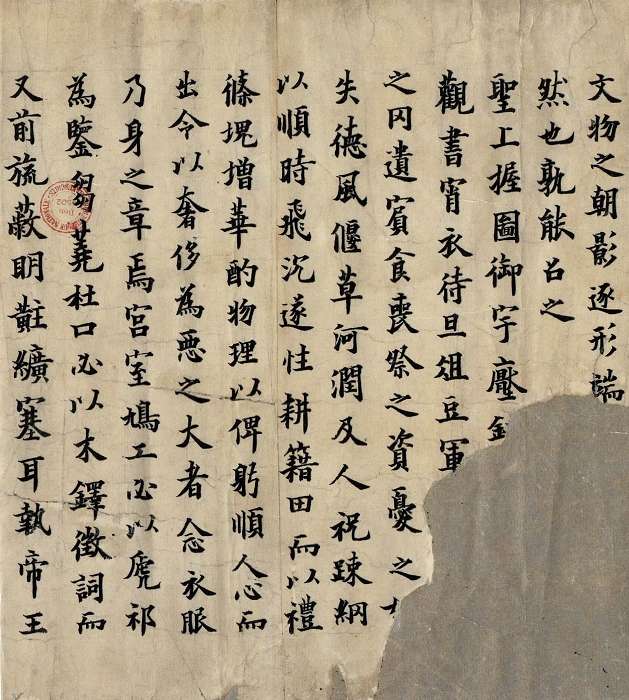 文物之朝影逐形端
然也孰能召之
聖上握圖御宇壓
觀書宵衣待旦俎豆軍
之円遺賓食喪祭之資憂之
失德風偃草河潤及人祝踈網
以順時飛沉遂性耕籍田而以禮
絛塊增華酌物理以俾躬順人心而
出令以奢侈為悪之大者念衣服
乃身之章焉宮室鳩工必以虒祁
為鑒芻蕘杜口必以木鐸徵詞而
又前旒蔽明黈纊塞耳執帝王